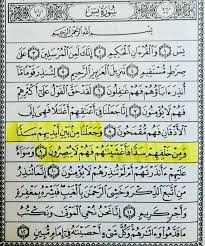 سُورَةُ يسٓ
بِسْمِ اللَّهِ الرَّحْمَٰنِ الرَّحِيمِ
يسٓ ۝١ وَالْقُرْآنِ الْحَكِيمِ ۝٢ إِنَّكَ لَمِنَ الْمُرْسَلِينَ ۝٣ عَلَىٰ
صِرَاطٍ مُّسْتَقِيمٍ ۝٤ تَنزِيلَ الْعَزِيزِ الرَّحِيمِ ۝٥ لِتُنذِرَ قَوْمًا مَّا
أُنذِرَ آبَاؤُهُمْ فَهُمْ غَافِلُونَ ۝٦ لَقَدْ حَقَّ الْقَوْلُ عَلَىٰ أَكْثَرِهِمْ
فَهُمْ لَا يُؤْمِنُونَ ۝٧ إِنَّا جَعَلْنَا فِي أَعْنَاقِهِمْ أَغْلَالًا فَهِيَ إِلَى
الْأَذْقَانِ فَهُم مُّقْمَحُونَ ۝٨ وَجَعَلْنَا مِن بَيْنِ أَيْدِيهِمْ سَدًّا
وَمِنْ خَلْفِهِمْ سَدًّا فَأَغْشَيْنَاهُمْ فَهُمْ لَا يُبْصِرُونَ ۝٩ وَسَوَاءٌ
عَلَيْهِمْ أَأَنذَرْتَهُمْ أَمْ لَمْ تُنذِرْهُمْ لَا يُؤْمِنُونَ ۝١٠ إِنَّمَا تُنذِرُ
مَنِ اتَّبَعَ الذِّكْرَ وَخَشِيَ الرَّحْمَٰنَ بِالْغَيْبِ فَبَشِّرْهُ بِمَغْفِرَةٍ
وَأَجْرٍ كَرِيمٍ ۝١١ إِنَّا نَحْنُ نُحْيِي الْمَوْتَىٰ وَنَكْتُبُ
مَا قَدَّمُوا وَآثَارَهُمْ وَكُلَّ شَيْءٍ أَحْصَيْنَاهُ فِي إِمَامٍ مُّبِينٍ ۝١٢